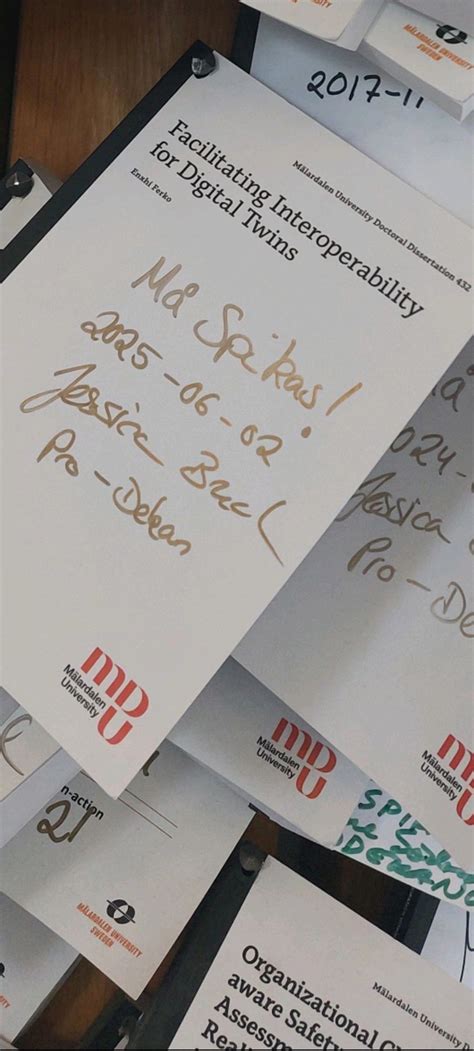 MÄLARDALEN UNIVERSITY
SWEDEN
2017-11
Mälardalen University Doctoral Dissertation 432
Facilitating Interoperability
for Digital Twins
Enxhi Ferko
Må Spikas!
2025-06-02
Jessica
Pro-Dekan
MDU
Mälardalen
University
024-
Jessica
Pro-De
MDU
Mälardalen
University
n-action
21
MÄLARDALEN UNIVERSITY
SWEDEN
SPI
Mälardalen
University
Mälardalen Univers
Organizational C
aware Safety
Assessm
Real